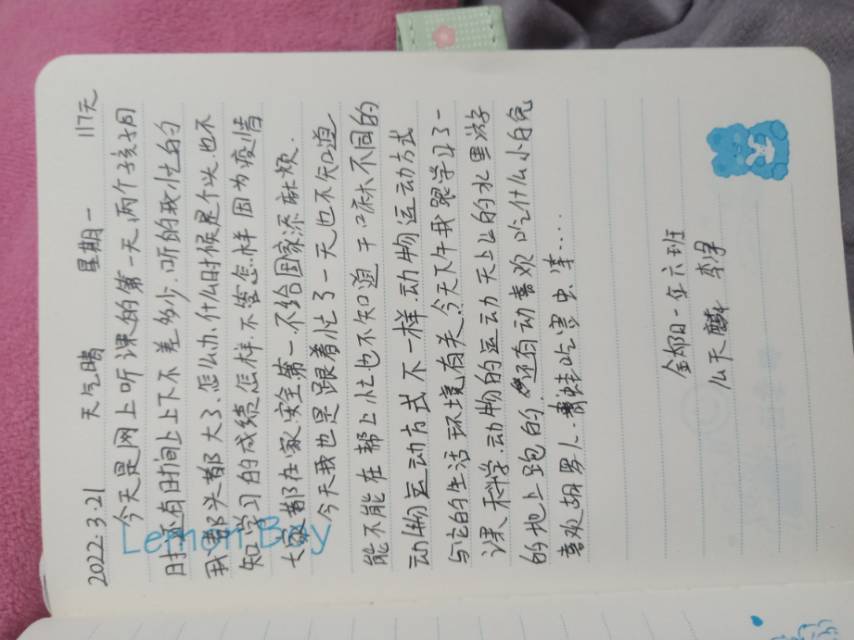 2022.3.21 天气晴 星期一 117天
今天是网上听课的第一天,两个孩子同
时,还有时间上上下不差多少.听的我忙的
我都头都大了.怎么办.什么时候是个头.也不
知学习的成绩怎样不管怎样因为疫情
大家都在家安全第一不给国家添麻烦.
今天我也是跟着忙了一天也不知道
能不能在帮上忙也不知道干嘛不同的
动物运动方式不一样.动物运动方式
与它的生活环境有关.今天下午我跟学习了一
课科学.动物的运动天上的水里游
的地上跑的.还有动喜欢吃什么小白兔
喜欢胡萝卜.青蛙吃害虫等....
一年六班
Lemon Boy